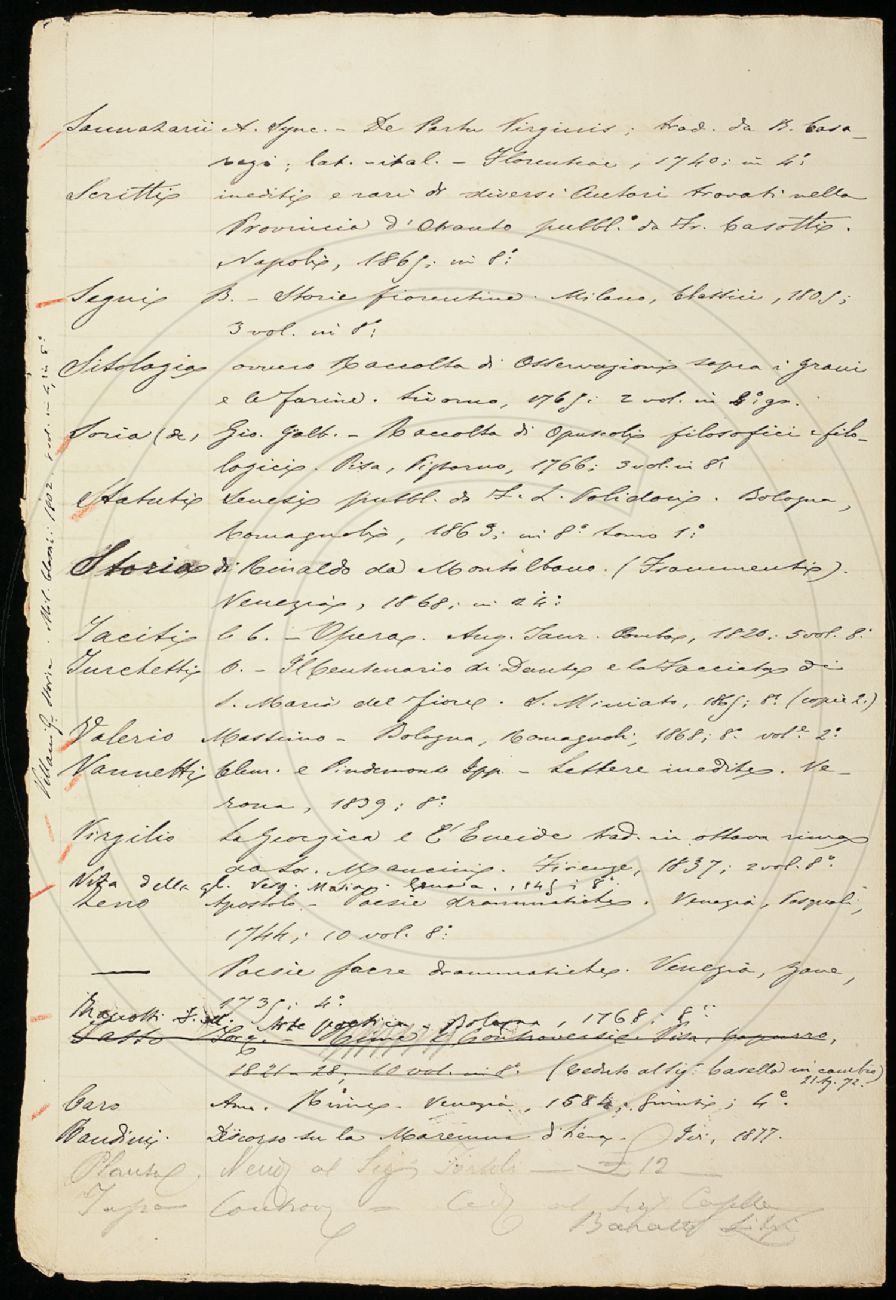 Sannazarii A. Sync. - De Partu Virginis; trad. da B. Casa-
regi; lat. - ital. - Florentiae, 1740; in 4°:
Scritti inediti e rari di diversi Autori trovati nella
Provincia d'Otranto pubbl.° da Fr. Casotti.
Napoli, 1865; in 8°:
Segni B. - Storie fiorentine. Milano, Classici, 1805;
3 vol. in 8°:
Sitologia ovvero Raccolta di Osservazioni sopra i grani
e le farine. Livorno, 1765; 2 vol. in 8°: gr.
Soria (de) Gio. Galb. - Raccolta di Opuscoli filosofici e filo-
logici. Pisa, Pizzorno, 1766; 3 vol. in 8°:
Statuti Senesi pubbl. da F. L. Polidori. Bologna,
Romagnoli, 1863; in 8° tomo 1°:
Storia di Rinaldo da Montalbano. (Frammenti).
Venezia, 1868; in 24°:
Taciti C. C. - Opera. Aug. Taur. Pomba, 1820; 5 vol. 8°:
Turchetti O. - Il Centenario di Dante e la Facciata di
S. Maria del Fiore. S. Miniato, 1865; 8°: (copie 2.)
Valerio Massimo - Bologna, Romagnoli, 1868; 8°. vol.e 2°.
Vannetti Clem. e Pindemonte Ipp. - Lettere inedite. Ve-
rona, 1839; 8°:
Virgilio La Georgica e L'Eneide trad. in ottava rima
da Lor. Mancini. Firenze, 1837; 2 vol. 8°.
Vita della gl. Verg. Maria. 8°.
Zeno Apostolo - Poesie drammatiche. Venezia, Pasquali,
1744; 10 vol. 8°:
— Poesie sacre drammatiche. Venezia, Zane,
1735; 4°.
Zanotti F. M. Arte poetica - Bologna, 1768; 8°:
Tasso Torq. - Rime e Controversie. Pisa, Capurro,
1821-28, 10 vol. in 8°. (Ceduto al Sig. Casella in cambio)
Caro Ann. Rime. Venezia, 1584; Giunti; 4°.
Bandini. Discorso su la Maremma di Siena. 1877.
Plauto. al Sig. 12
al Sig.
Villani G. Storia. Mil. Classi: 1802. 8 vol. in 8°